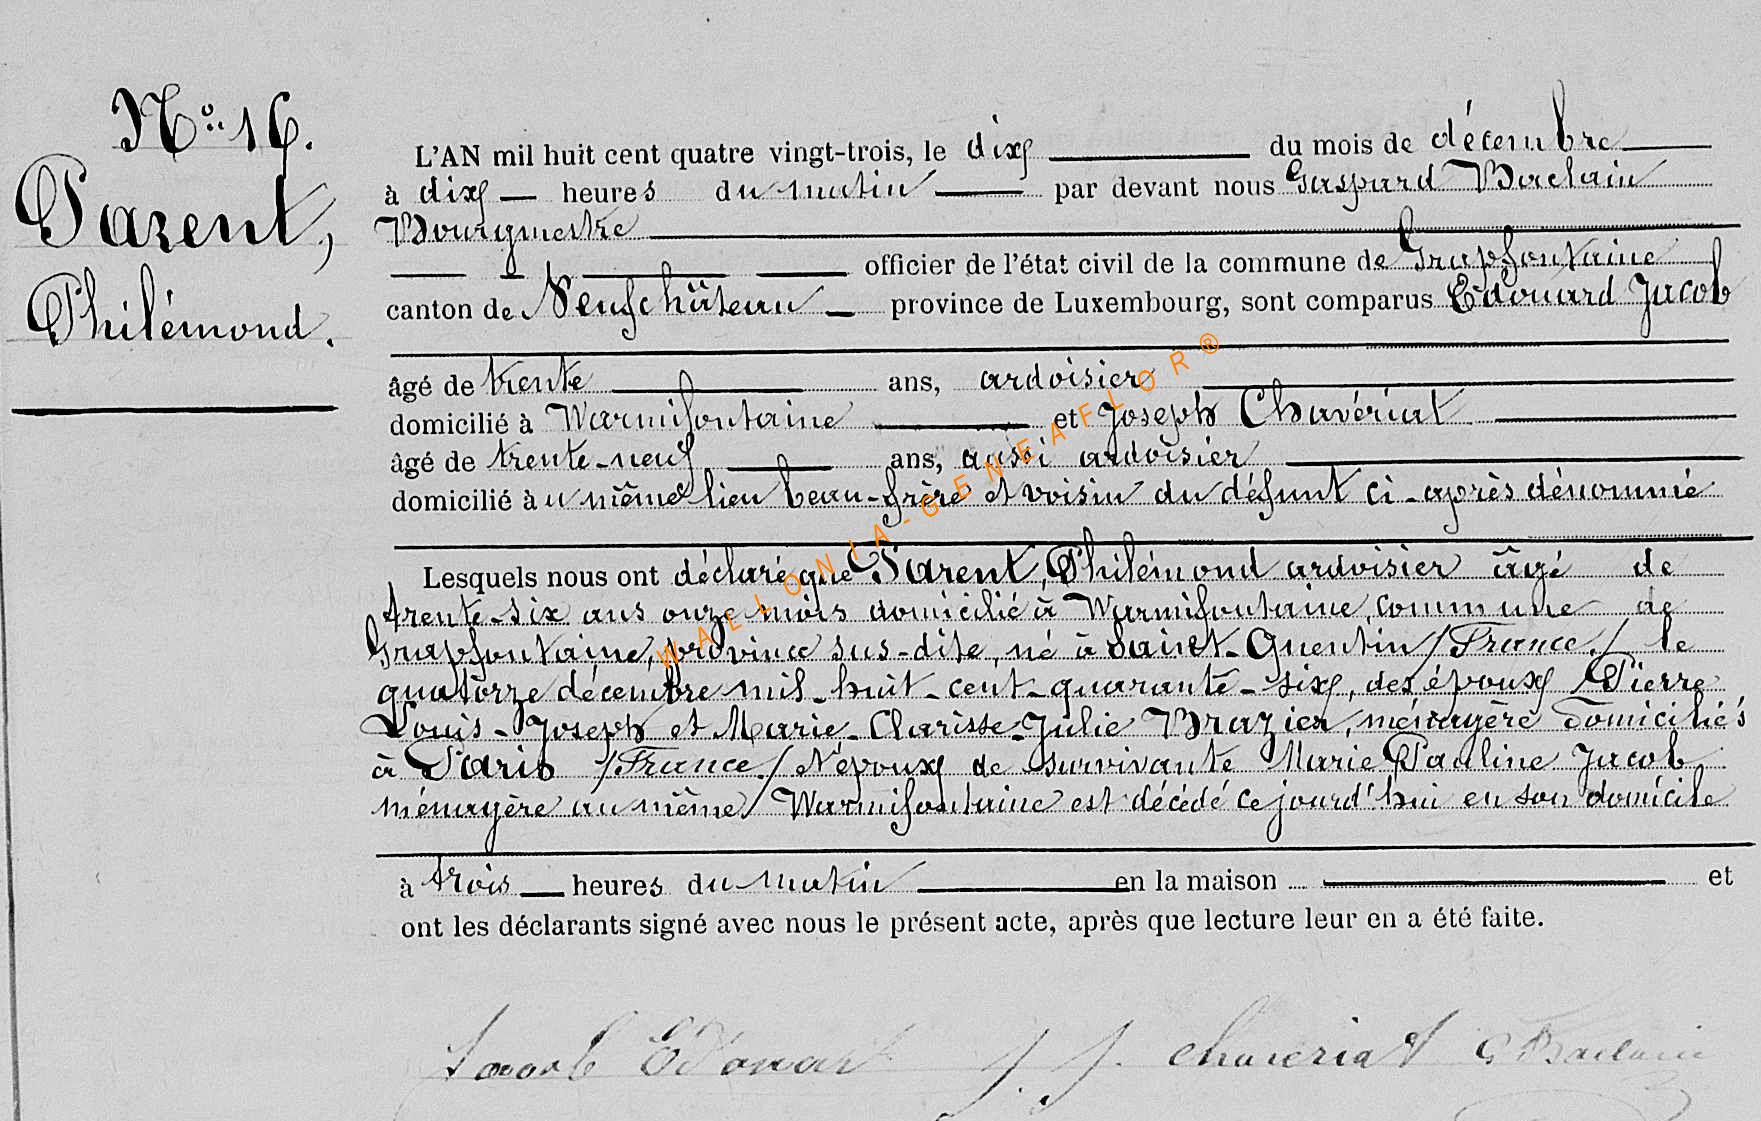 No. 16.
Parent,
Philémond.
L'AN mil huit cent quatre vingt-trois, le dix du mois de décembre
à dix heures du matin par devant nous Gaspard Baclain
Bourgmestre
officier de l'état civil de la commune de Grapfontaine
canton de Neufchâteau province de Luxembourg, sont comparus Edouard Jacob
âgé de trente ans, ardoisier
domicilié à Warmifontaine et Joseph Chavériat
âgé de trente-neuf ans, aussi ardoisier
domicilié à u même lieu beau-frère et voisin du défunt ci-après dénommé
Lesquels nous ont déclaré que Parent, Philémond ardoisier âgé de
trente-six ans onze mois domicilié à Warmifontaine, commune de
Grapfontaine, province sus-dite, né à Saint-Quentin /France./ le
quatorze décembre mil-huit-cent-quarante-six, des époux Pierre
Louis-Joseph et Marie-Clarisse-Julie Brazier, ménagère domiciliés
à Paris /France./ Népoux de survivante Marie Pauline Jacob,
ménagère au même Warmifontaine est décédé ce jourd'hui en son domicile
à trois heures du matin en la maison et
ont les déclarants signé avec nous le présent acte, après que lecture leur en a été faite.
Jacob Edouart J. J. Chaveriat G Baclain
WALLONIA-GENEAFLOR®